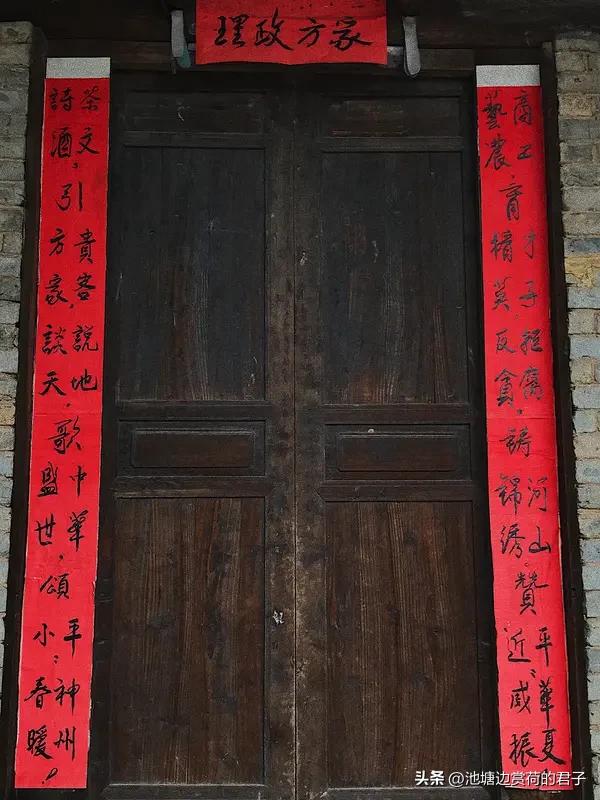 理政方家
商工藝農，育才子精英拒腐反貪，鑄河山錦繡，贊平近：華夏咸振
茶文詩酒，引貴客方家，說地談天，歌中華盛世，頌平小：神州春暖！
头条 @池塘边赏荷的君子